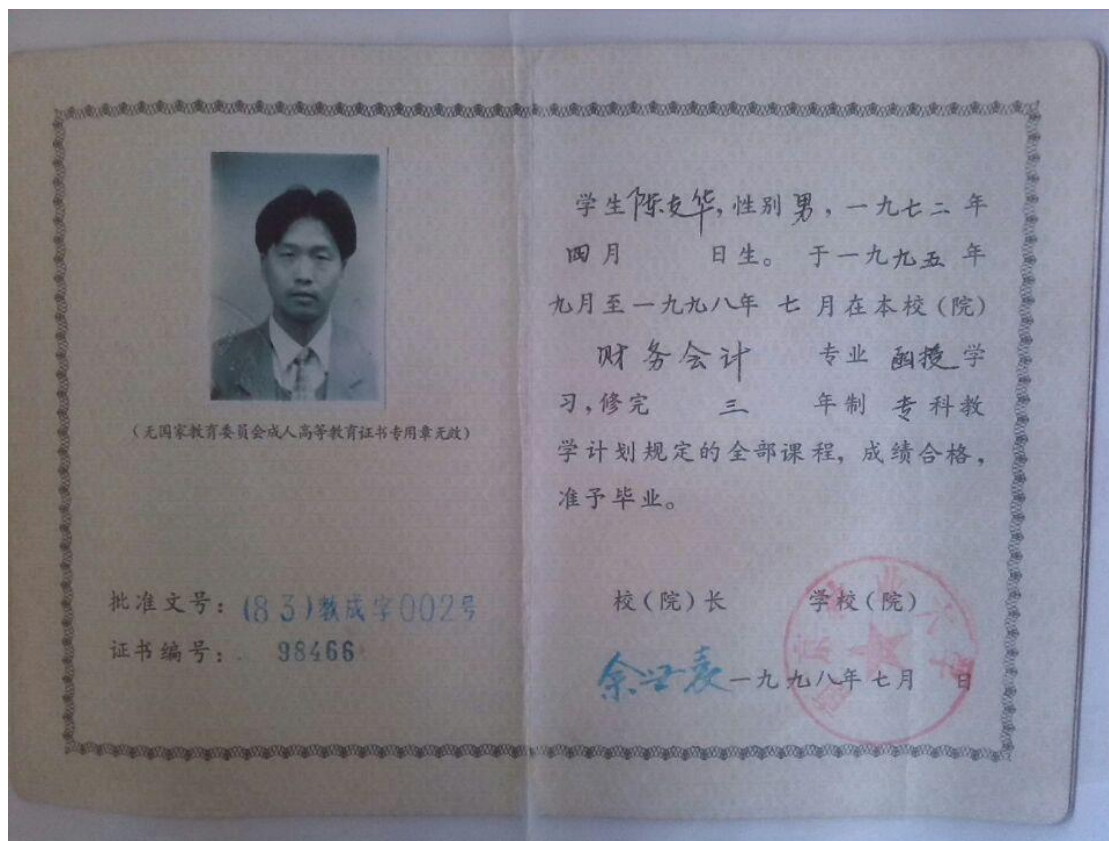 （无国家教育委员会成人高等教育证书专用章无效）
批准文号：(83)教成字002号
证书编号：98466
学生陈友华，性别男，一九七二年
四月 日生。于一九九五年
九月至一九九八年 七 月在本校（院）
财务会计 专业 函授学
习，修完 三 年制 专科教
学计划规定的全部课程，成绩合格，
准予毕业。
校（院）长 学校（院）
余世袁一九九八年七月 日